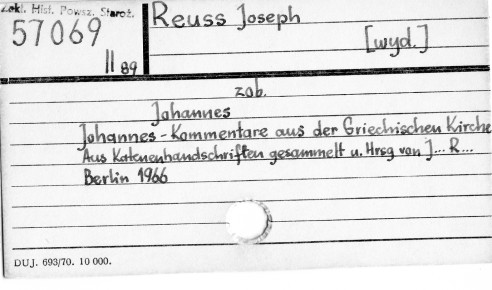 Zakł. Hist. Powsz. Staroż.
57069
II 89
Reuss Joseph
[wyd.]
zob.
Johannes
Johannes-Kommentare aus der Griechischen Kirche
Aus Katenenhandschriften gesammelt u. Hrsg von J... R...
Berlin 1966
DUJ. 693/70. 10 000.